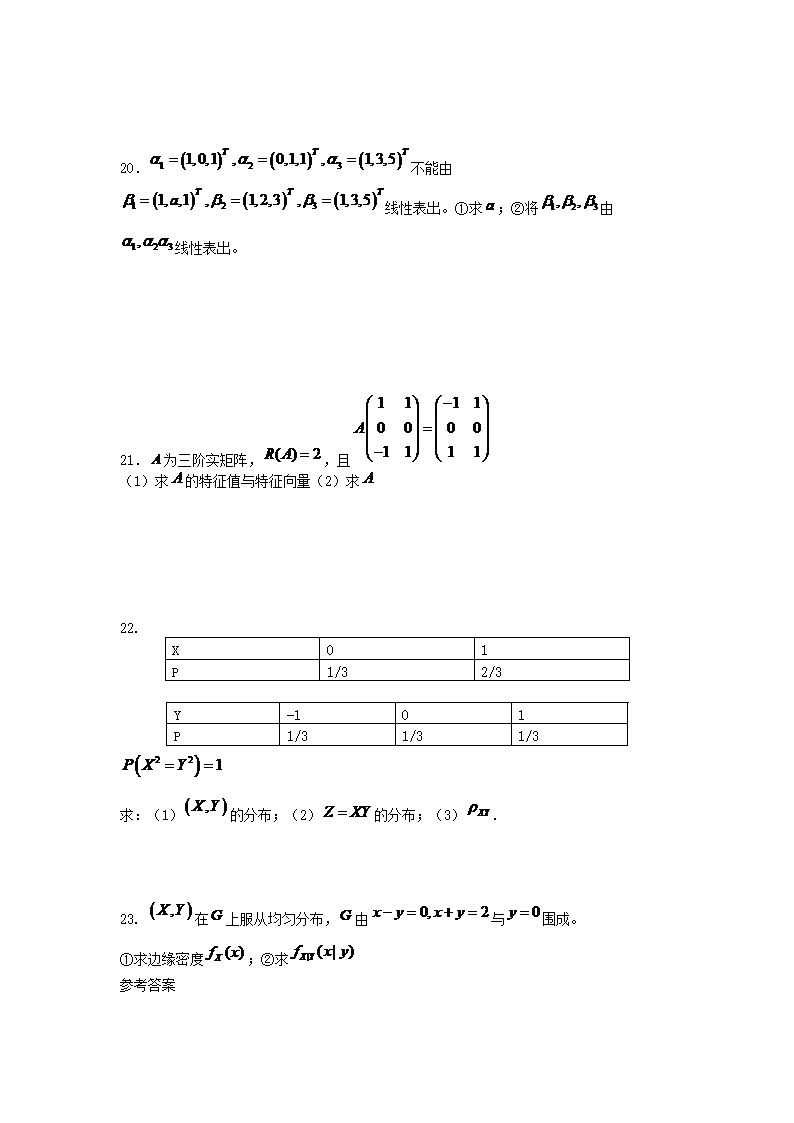 20. α₁ = (1,0,1)ᵀ, α₂ = (0,1,1)ᵀ, α₃ = (1,3,5)ᵀ 不能由
β₁ = (1,a,1)ᵀ, β₂ = (1,2,3)ᵀ, β₃ = (1,3,5)ᵀ 线性表出。①求 a ；②将 β₁,β₂,β₃ 由
α₁,α₂α₃ 线性表出。
21. A 为三阶实矩阵， R(A) = 2 ，且 A(1 1; 0 0; −1 1) = (−1 1; 0 0; 1 1)
（1）求 A 的特征值与特征向量（2）求 A
22.
X 0 1
P 1/3 2/3
Y −1 0 1
P 1/3 1/3 1/3
P(X² = Y²) = 1
求：（1）(X,Y) 的分布；（2）Z = XY 的分布；（3）ρ_XY .
23. (X,Y) 在 G 上服从均匀分布， G 由 x − y = 0, x + y = 2 与 y = 0 围成。
①求边缘密度 f_X(x) ；②求 f_X|Y(x | y)
参考答案